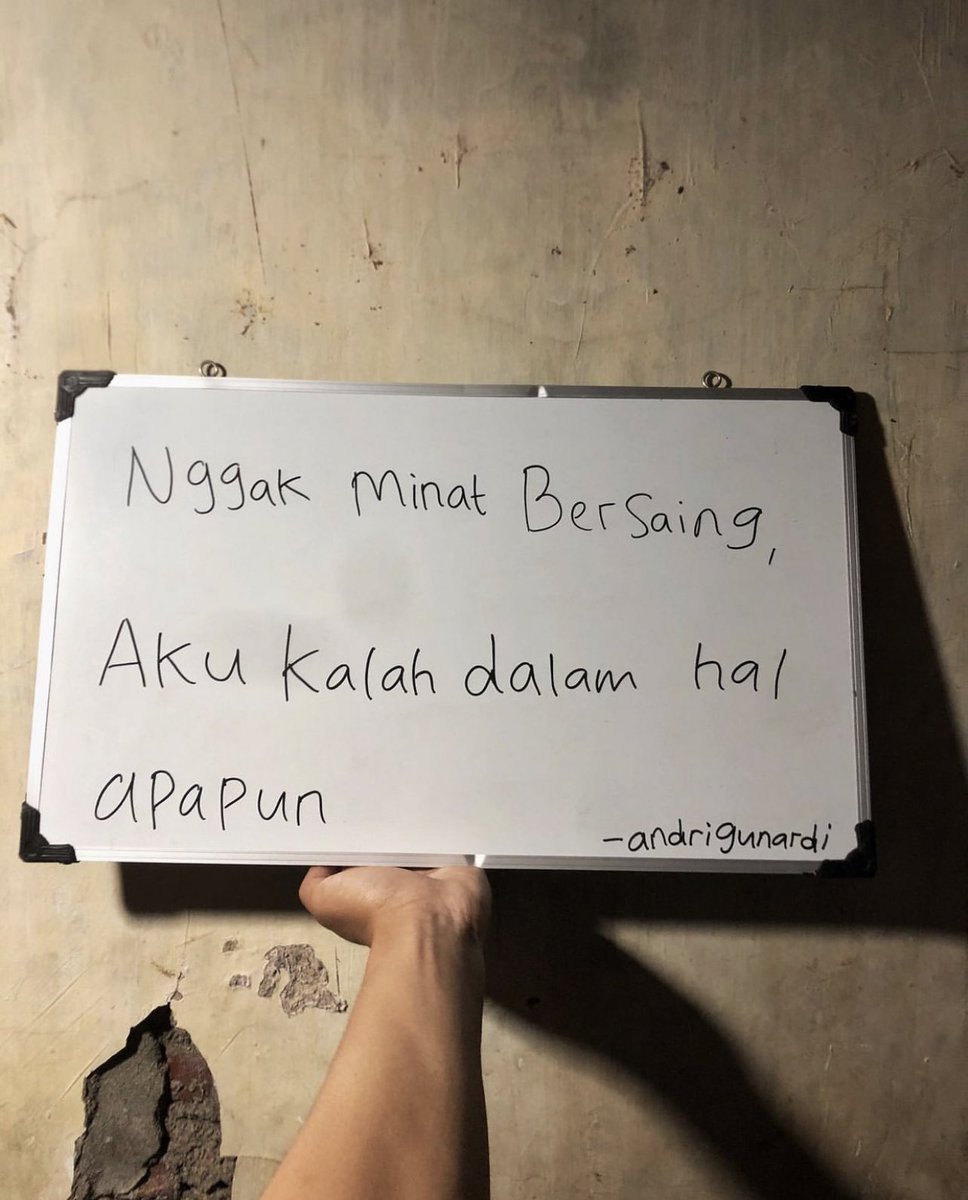 Nggak Minat Bersaing,
Aku kalah dalam hal
apapun
-andrigunardi